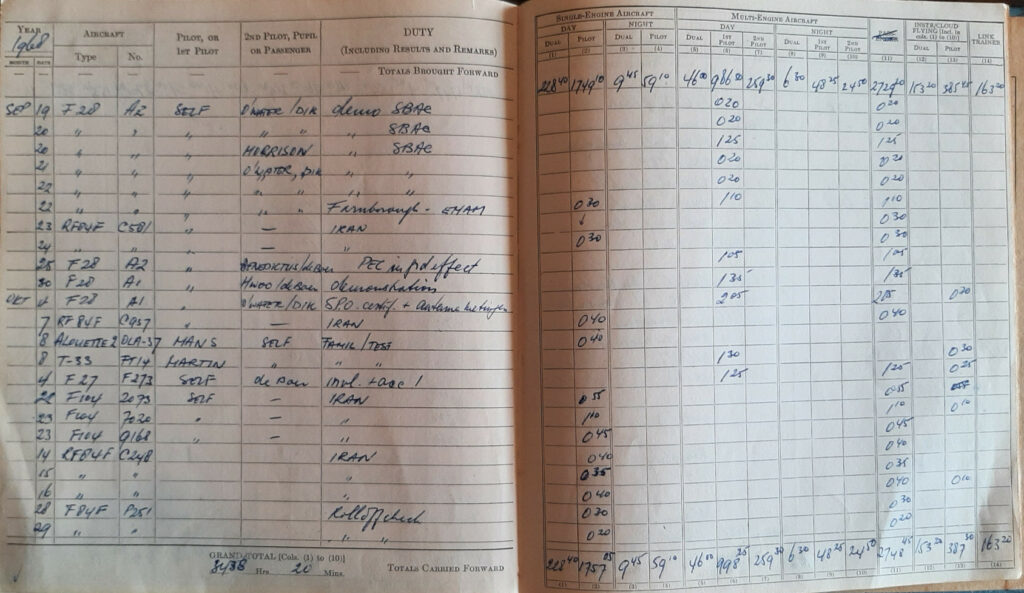 YEAR 1968
AIRCRAFT
PILOT, OR 1ST PILOT
2ND PILOT, PUPIL OR PASSENGER
DUTY (INCLUDING RESULTS AND REMARKS)
MONTH DATE Type No.
— — — — — — TOTALS BROUGHT FORWARD
SEP 19 F28 A2 SELF O'WATER/DIK demo SBAC
20 " " " " " " SBAC
20 " " " MORRISON " SBAC
21 " " " O'WATER, DIK " "
22 " " " " " " "
22 " " " " " Farnborough - EHAM
23 RF84F " — IRAN
24 " " " — "
25 F28 A2 " BENEDICTUS/deBoer PEC effect
30 F28 A1 " /deBoer demonstration
OKT 4 F28 A1 " O'WATER/DIK SPO. certif +
7 RF84F " — IRAN
8 ALOUETTE 2 OLA-37 MANS SELF FAMIL/TEST
8 T-33 FT14 MARTIN " "
4 F27 F273 SELF de Boer invl. + acc!
22 F104 2073 SELF — IRAN
23 F104 7020 " — "
23 F104 9168 " — "
14 RF84F C248 IRAN
15 " " "
16 " " "
28 F84F P251 Rolloffcheck
29 " " " "
GRAND TOTAL [Cols. (1) to (10)]
3438 Hrs. 20 Mins.
TOTALS CARRIED FORWARD
SINGLE-ENGINE AIRCRAFT
MULTI-ENGINE AIRCRAFT
INSTR/CLOUD FLYING [Incl. in cols. (1) to (10)]
LINK TRAINER
DAY NIGHT DAY NIGHT
DUAL PILOT DUAL PILOT DUAL 1ST PILOT 2ND PILOT DUAL 1ST PILOT 2ND PILOT DUAL PILOT
(1) (2) (3) (4) (5) (6) (7) (8) (9) (10) (11) (12) (13) (14)
228 40 1749 10 9 45 59 10 46 00 986 50 259 30 6 30 48 25 24 50 2729 153 20 385 45 163 20
0 20 0 20
0 20 0 20
1 25 1 25
0 20 0 20
0 20 0 20
1 10 1 10
0 30 0 30
0 30 0 30
1 05 1 05
1 35 1 35
2 05 2 05 0 20
0 40 0 40
0 40
1 30 0 30
1 25 1 25 0 25
0 55 0 55
1 10 1 10 0 10
0 45 0 45
0 40 0 40
0 35 0 35
0 40 0 40 0 10
0 30 0 30
0 20 0 20
228 40 1757 05 9 45 59 10 46 00 998 25 259 30 6 30 48 25 24 50 2748 45 153 20 387 30 163 20
(1) (2) (3) (4) (5) (6) (7) (8) (9) (10) (11) (12) (13) (14)